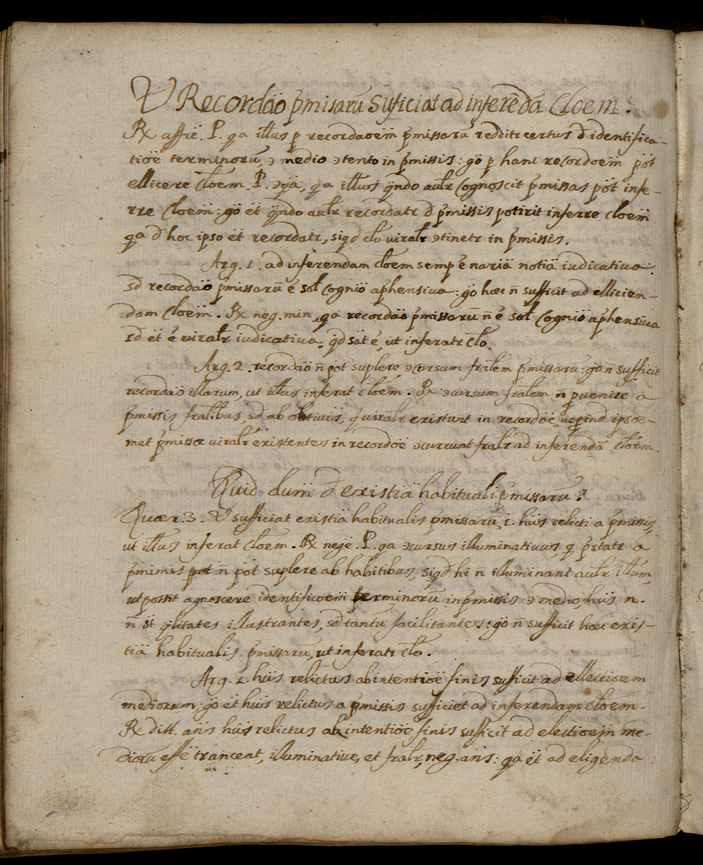 V Recordäo p̃misarũ Suficiat ad inferẽda Cloem?
Rx affiẽ P. qa illus p recordaoem p̃missarũ redditr certus d identifica-
tioë terminorũ, ɔ medio ɔtento in p̃missis: gö p hanc recordoem pöt
ellicere Cloem. P. ɔqa, qa illuos qndo aulr Cognoscit p̃missas pöt infe-
rre Cloem: gö et qndo aulr recordatr d p̃missis potirit inferre cloem
qa d hoc ipso et recordatr, sigd clo viralr ɔtinetr in p̃missis.
Arg. 1. ad inferendam cloem semp ë naria notia iudicativa.
sd recordäo p̃missarũ ë sol Cognio aphensiva: gö hœc ñ sufficit ad ellicien-
dam Cloem. Rx neg. min, qa recordäo p̃missarũ ñ ë sol Cognio aphensiva
sd et ë viralr iudicativa, qd sat ë, ut inferatr clo.
Arg. 2. recordäo ñ pöt suplere ɔcursum fralem p̃missarũ: gö ñ sufficit
recordäo illarum, ut illus inferat cloem. Rx ɔcursum fralem ñ pvenire a
p̃missis fralibus, sd ab obtivis, q viralr existunt in recordöe, acpind ipsœ-
met p̃missœ viralr existentes in recordöe ɔcurrunt fralr ad inferendã cloem.
Quid dum d existïa habituali p̃missarũ?
Quær. 3. V sufficiat existïa habitualis p̃missarũ, i. huïs relicti a p̃missis,
ut illus inferat Cloem. Rx nege. P. qa ɔcursus illuminativus q p̃statr a
p̃mimis pot ñ pöt suplere ab habitibus, sigd hi ñ illuminant aulr illum
ut possit agnoscere identificoem terminorũ in p̃missis ɔ medio, huïs n.
ñ st qlitates illustrantes, sed tantu facilitantes: gö ñ sufficit hœc exis-
tïa habitualis p̃missarũ, ut inferatr clo.
Arg. 1. huïs relictus ab intentiöe finis sufficit ad ellectioem
mediorum; gö et huïs relictus a p̃missis sufficiet ad inferendam cloem.
Rx dist. añs huïs relictus ab intentiöe finis sufficit ad electioem me-
diorũ effë tranceat, illuminative, et fralr, neg. añs: qa et ad eligenda